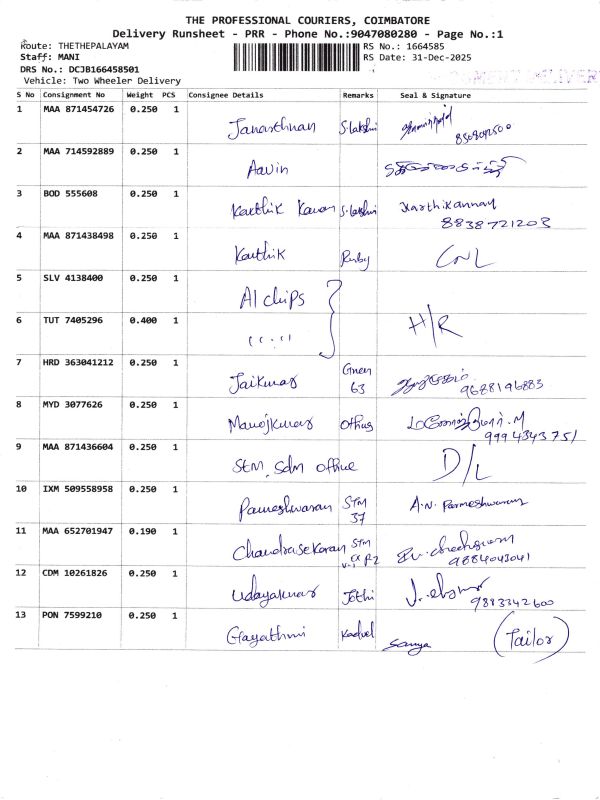 THE PROFESSIONAL COURIERS, COIMBATORE
Delivery Runsheet - PRR - Phone No.:9047080280 - Page No.:1
Route: THETHEPALAYAM RS No.: 1664585
Staff: MANI RS Date: 31-Dec-2025
DRS No.: DCJB166458501
Vehicle: Two Wheeler Delivery
S No Consignment No Weight PCS Consignee Details Remarks Seal & Signature
1 MAA 871454726 0.250 1 Janarthnan S.lakshmi
2 MAA 714592889 0.250 1 Aavin
3 BOD 555608 0.250 1 Karthik Kannan S.lakshmi Karthikannan
8838721203
4 MAA 871438498 0.250 1 Karthik
5 SLV 4138400 0.250 1 AI chips
6 TUT 7405296 0.400 1 H/R
7 HRD 363041212 0.250 1 Jaikumar Green 63
9688196883
8 MYD 3077626 0.250 1 Manojkumar
9994343751
9 MAA 871436604 0.250 1 STM, Sdm office D/L
10 IXM 509558958 0.250 1 Pameshwaran STM 37 A.N. Parmeshwaran
11 MAA 652701947 0.190 1 Chandrasekaran STM
9884043041
12 CDM 10261826 0.250 1 Udayakumar Jothi
9883342600
13 PON 7599210 0.250 1 Gayathri (Tailor)